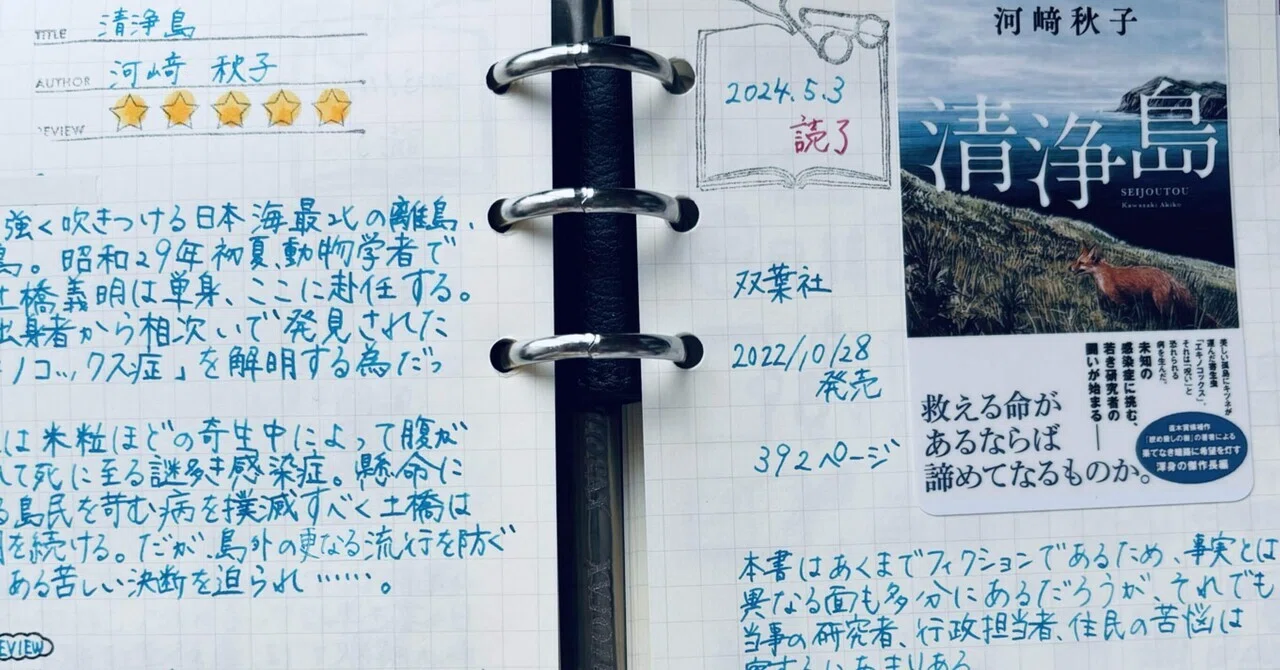 TITLE 清浄島
AUTHOR 河﨑 秋子
REVIEW
強く吹きつける日本海最北の離島、
島。昭和29年初夏、動物学者で
土橋義明は単身、ここに赴任する。
出身者から相次いで発見された
ノコックス症」を解明する為だっ
は米粒ほどの寄生中によって腹が
て死に至る謎多き感染症。懸命に
る島民を苛む病を撲滅すべく土橋は
を続ける。だが、島外の更なる流行を防ぐ
ある苦しい決断を迫られ……。
REVIEW
2024.5.3
読了
双葉社
2022/10/28
発売
392ページ
河﨑秋子
清浄島
SEIJOUTOU
Kawasaki Akiko
美しい孤島にキツネが
運んだ寄生虫
「エキノコックス」。
それは「呪い」と
恐れられる
病を生んだ。
未知の
感染症に挑む、
若き研究者の
闘いが始まる──
救える命が
あるならば
諦めてなるものか。
直木賞候補作
『絞め殺しの樹』の著者による
果てなき暗闇に希望を灯す
渾身の傑作長編
本書はあくまでフィクションであるため、事実とは
異なる面も多分にあるだろうが、それでも
当事の研究者、行政担当者、住民の苦悩は
察するにあまりある